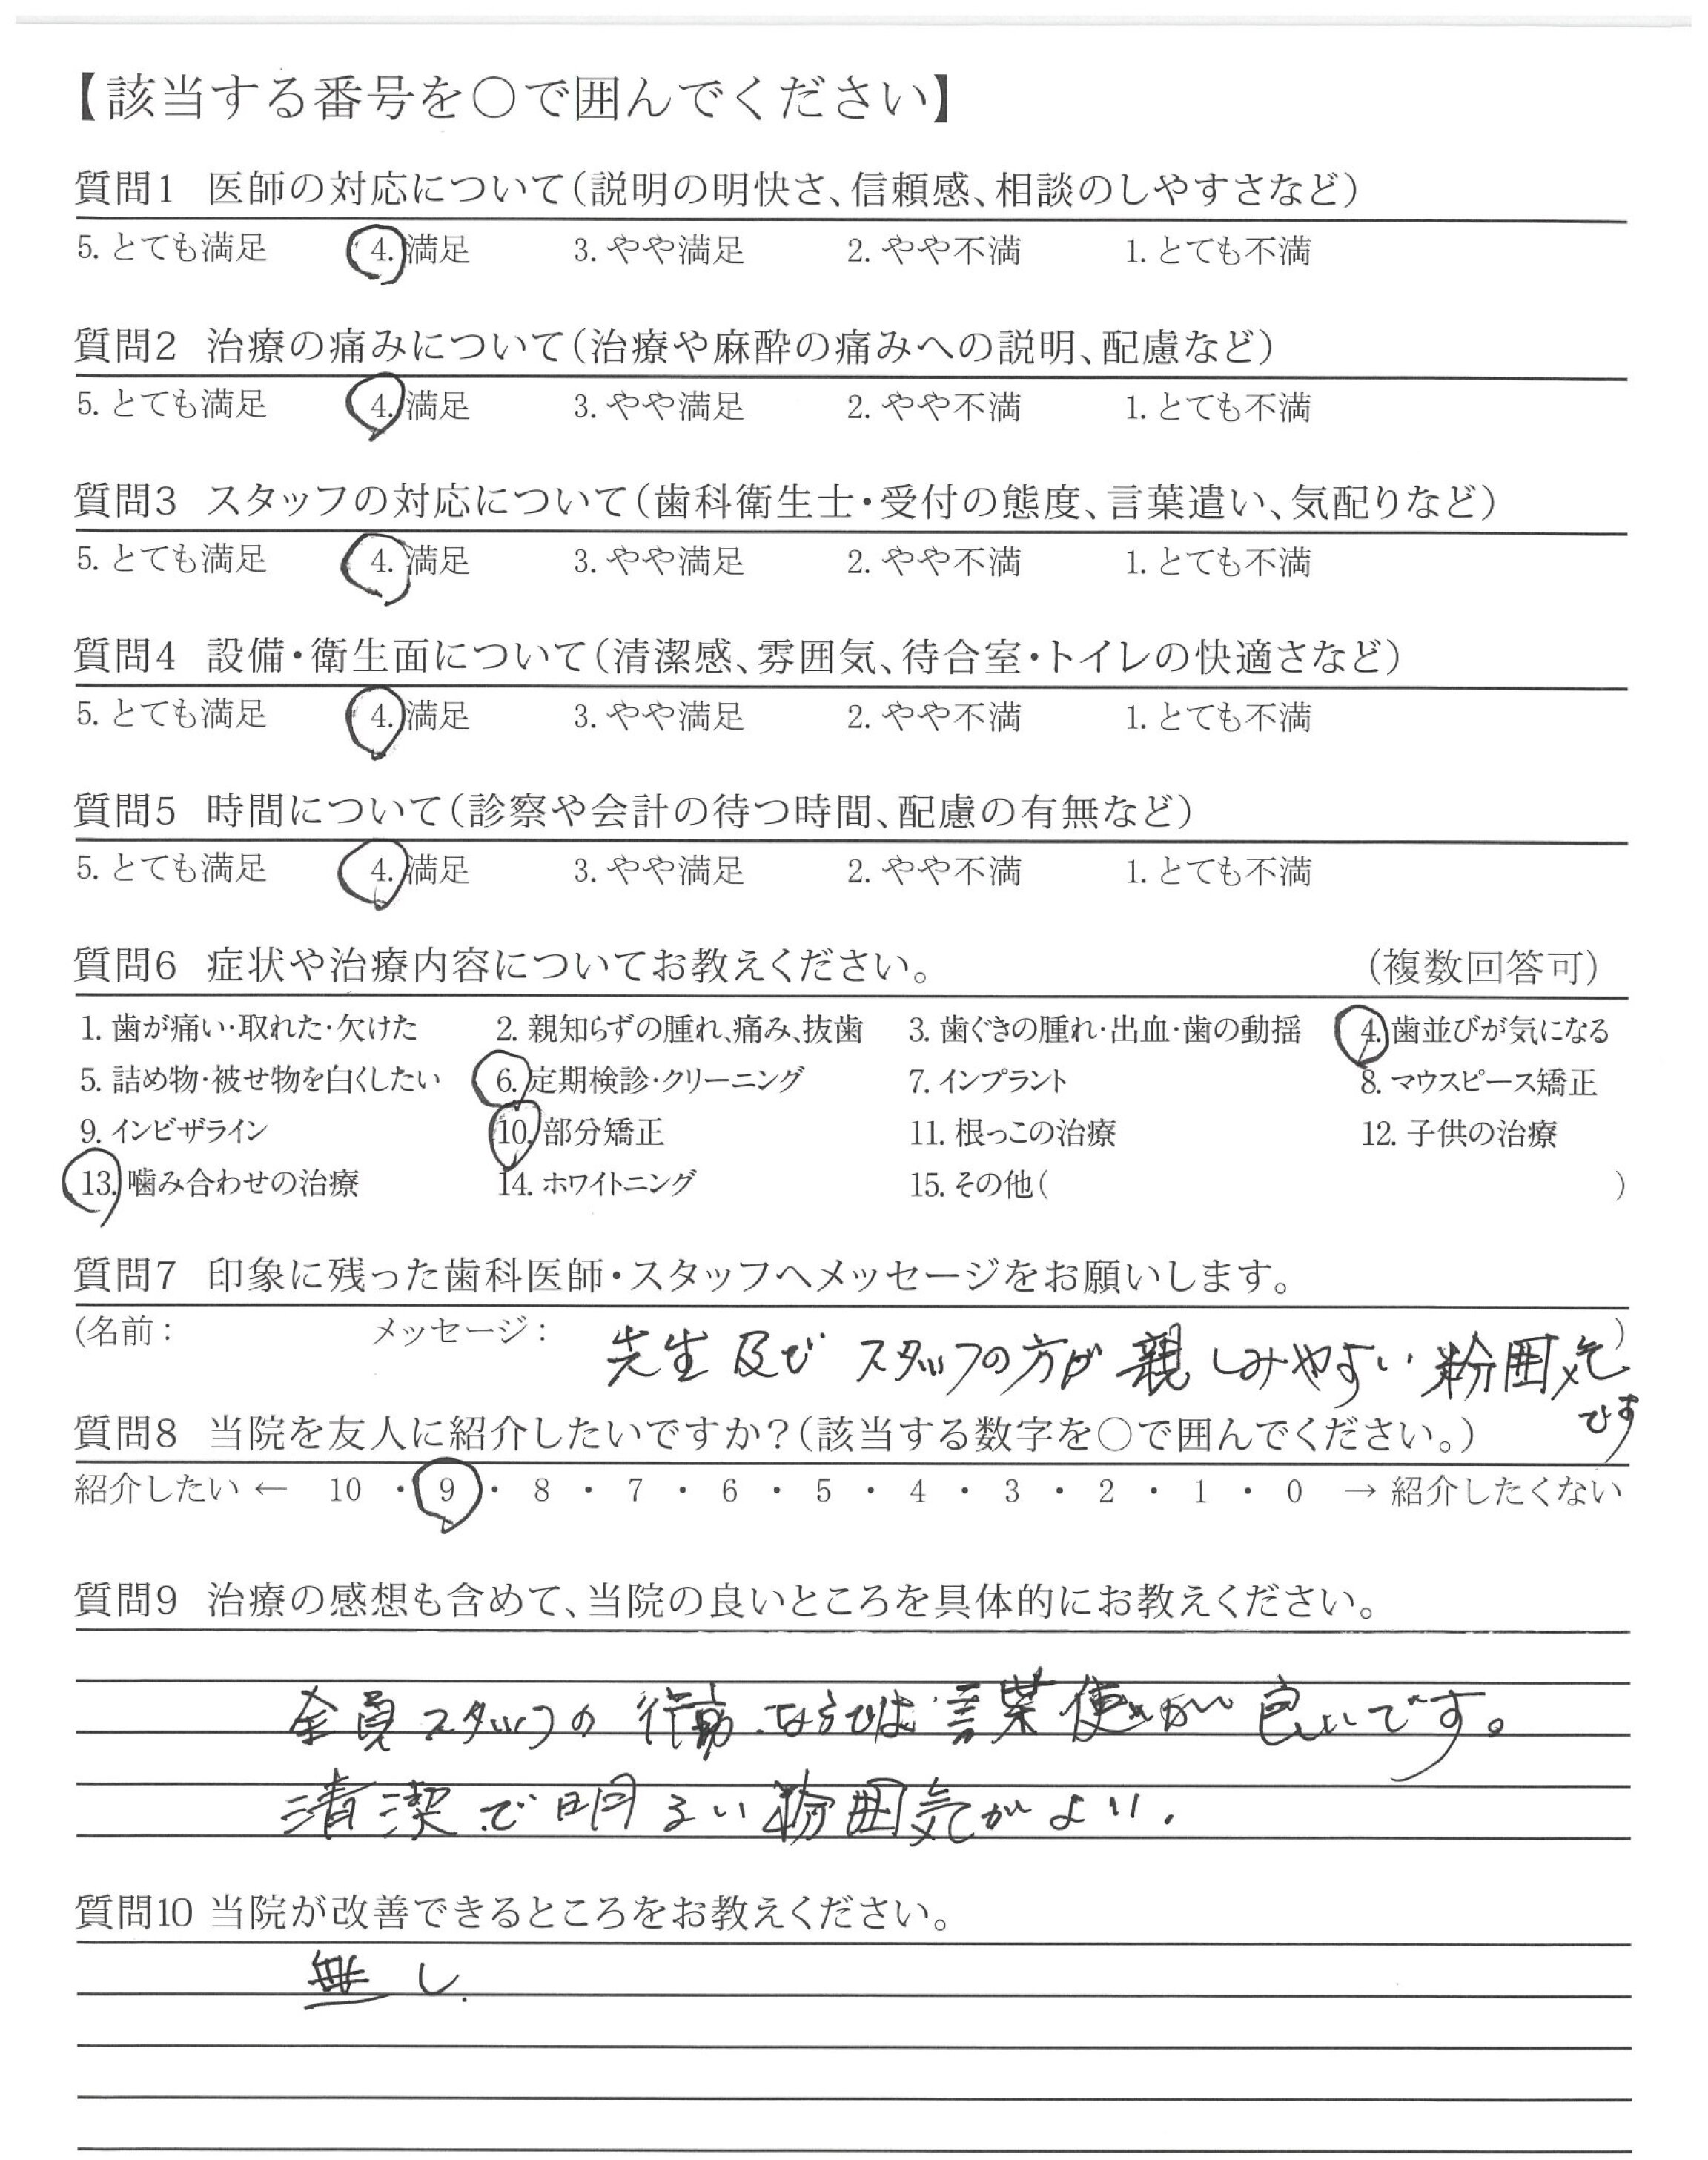 【該当する番号を○で囲んでください】
質問1 医師の対応について(説明の明快さ、信頼感、相談のしやすさなど)
5. とても満足 4. 満足 3. やや満足 2. やや不満 1. とても不満
質問2 治療の痛みについて(治療や麻酔の痛みへの説明、配慮など)
5. とても満足 4. 満足 3. やや満足 2. やや不満 1. とても不満
質問3 スタッフの対応について(歯科衛生士・受付の態度、言葉遣い、気配りなど)
5. とても満足 4. 満足 3. やや満足 2. やや不満 1. とても不満
質問4 設備・衛生面について(清潔感、雰囲気、待合室・トイレの快適さなど)
5. とても満足 4. 満足 3. やや満足 2. やや不満 1. とても不満
質問5 時間について(診察や会計の待つ時間、配慮の有無など)
5. とても満足 4. 満足 3. やや満足 2. やや不満 1. とても不満
質問6 症状や治療内容についてお教えください。 (複数回答可)
1. 歯が痛い・取れた・欠けた 2. 親知らずの腫れ、痛み、抜歯 3. 歯ぐきの腫れ・出血・歯の動揺 4. 歯並びが気になる
5. 詰め物・被せ物を白くしたい 6. 定期検診・クリーニング 7. インプラント 8. マウスピース矯正
9. インビザライン 10. 部分矯正 11. 根っこの治療 12. 子供の治療
13. 噛み合わせの治療 14. ホワイトニング 15. その他( )
質問7 印象に残った歯科医師・スタッフへメッセージをお願いします。
(名前: メッセージ: 先生及びスタッフの方が親しみやすい雰囲気 )
です
質問8 当院を友人に紹介したいですか?(該当する数字を○で囲んでください。)
紹介したい ← 10 ・ 9 ・ 8 ・ 7 ・ 6 ・ 5 ・ 4 ・ 3 ・ 2 ・ 1 ・ 0 → 紹介したくない
質問9 治療の感想も含めて、当院の良いところを具体的にお教えください。
全員スタッフの行動、ならびは言葉使いが良いです。
清潔で明るい雰囲気がよい.
質問10 当院が改善できるところをお教えください。
無し.